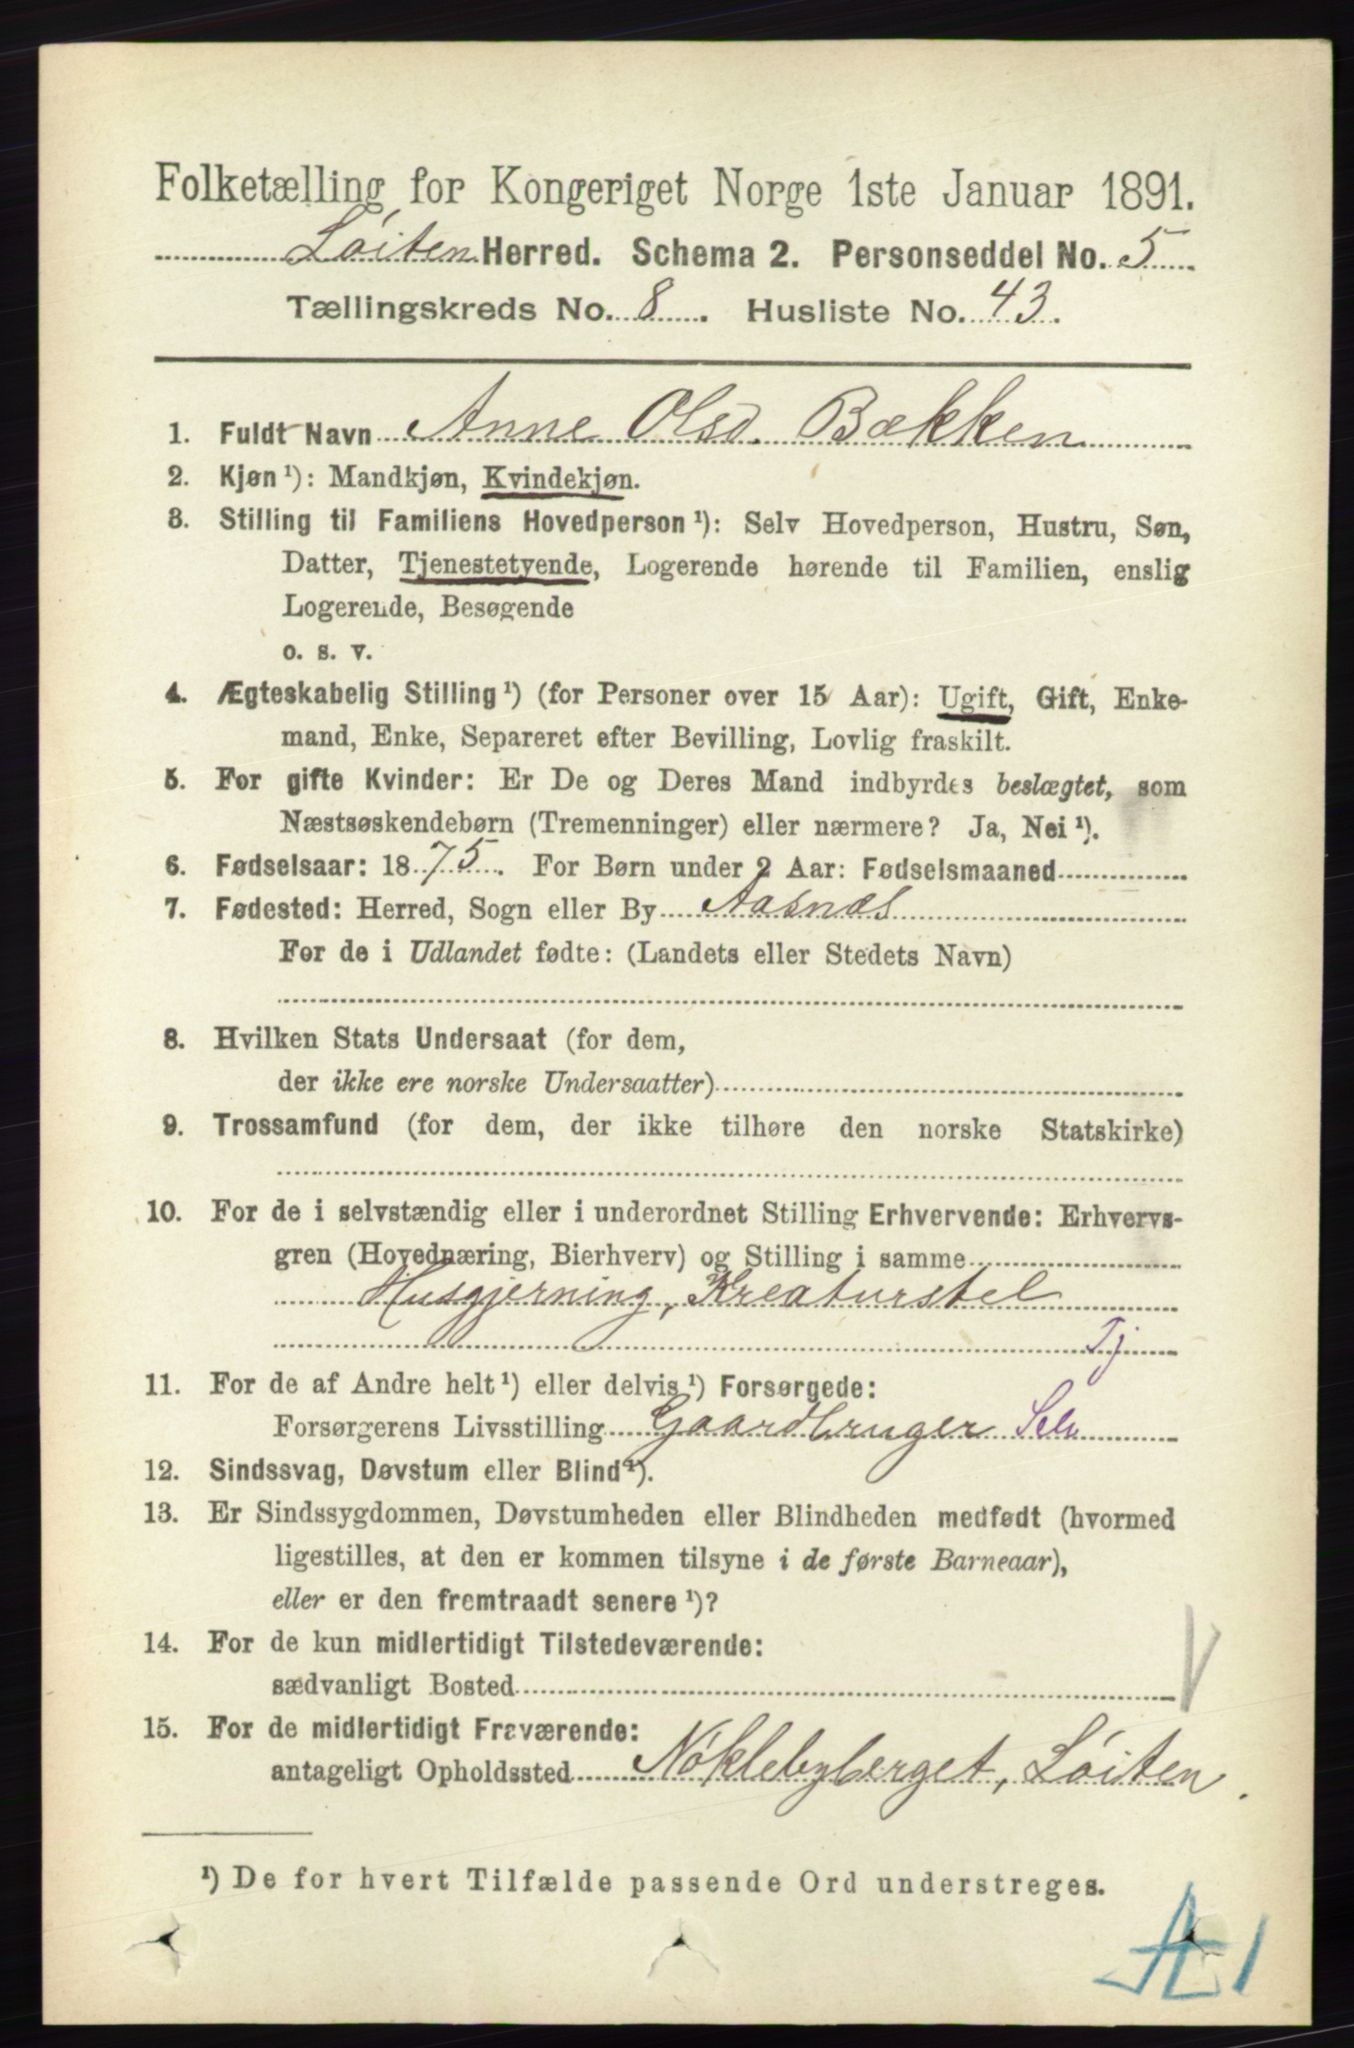 Folketælling for Kongeriget Norge 1ste Januar 1891.
Løiten Herred. Schema 2. Personseddel No. 5
Tællingskreds No. 8. Husliste No. 43.
1. Fuldt Navn Anne Olsd. Bækken
2. Kjøn ¹): Mandkjøn, Kvindekjøn.
3. Stilling til Familiens Hovedperson ¹): Selv Hovedperson, Hustru, Søn,
Datter, Tjenestetyende, Logerende hørende til Familien, enslig
Logerende, Besøgende
o. s. v.
4. Ægteskabelig Stilling ¹) (for Personer over 15 Aar): Ugift, Gift, Enke-
mand, Enke, Separeret efter Bevilling, Lovlig fraskilt.
5. For gifte Kvinder: Er De og Deres Mand indbyrdes beslægtet, som
Næstsøskendebørn (Tremenninger) eller nærmere? Ja, Nei ¹).
6. Fødselsaar: 1875. For Børn under 2 Aar: Fødselsmaaned
7. Fødested: Herred, Sogn eller By Aasnæs
For de i Udlandet fødte: (Landets eller Stedets Navn)
8. Hvilken Stats Undersaat (for dem,
der ikke ere norske Undersaatter)
9. Trossamfund (for dem, der ikke tilhøre den norske Statskirke)
10. For de i selvstændig eller i underordnet Stilling Erhvervende: Erhvervs-
gren (Hovednæring, Bierhverv) og Stilling i samme
Husgjerning, Kreaturstel
Tj
11. For de af Andre helt ¹) eller delvis ¹) Forsørgede:
Forsørgerens Livsstilling Gaardbruger Selv
12. Sindssvag, Døvstum eller Blind ¹).
13. Er Sindssygdommen, Døvstumheden eller Blindheden medfødt (hvormed
ligestilles, at den er kommen tilsyne i de første Barneaar),
eller er den fremtraadt senere ¹)?
14. For de kun midlertidigt Tilstedeværende:
sædvanligt Bosted
15. For de midlertidigt Fraværende:
antageligt Opholdssted Nøklebyberget, Løiten.
¹) De for hvert Tilfælde passende Ord understreges.